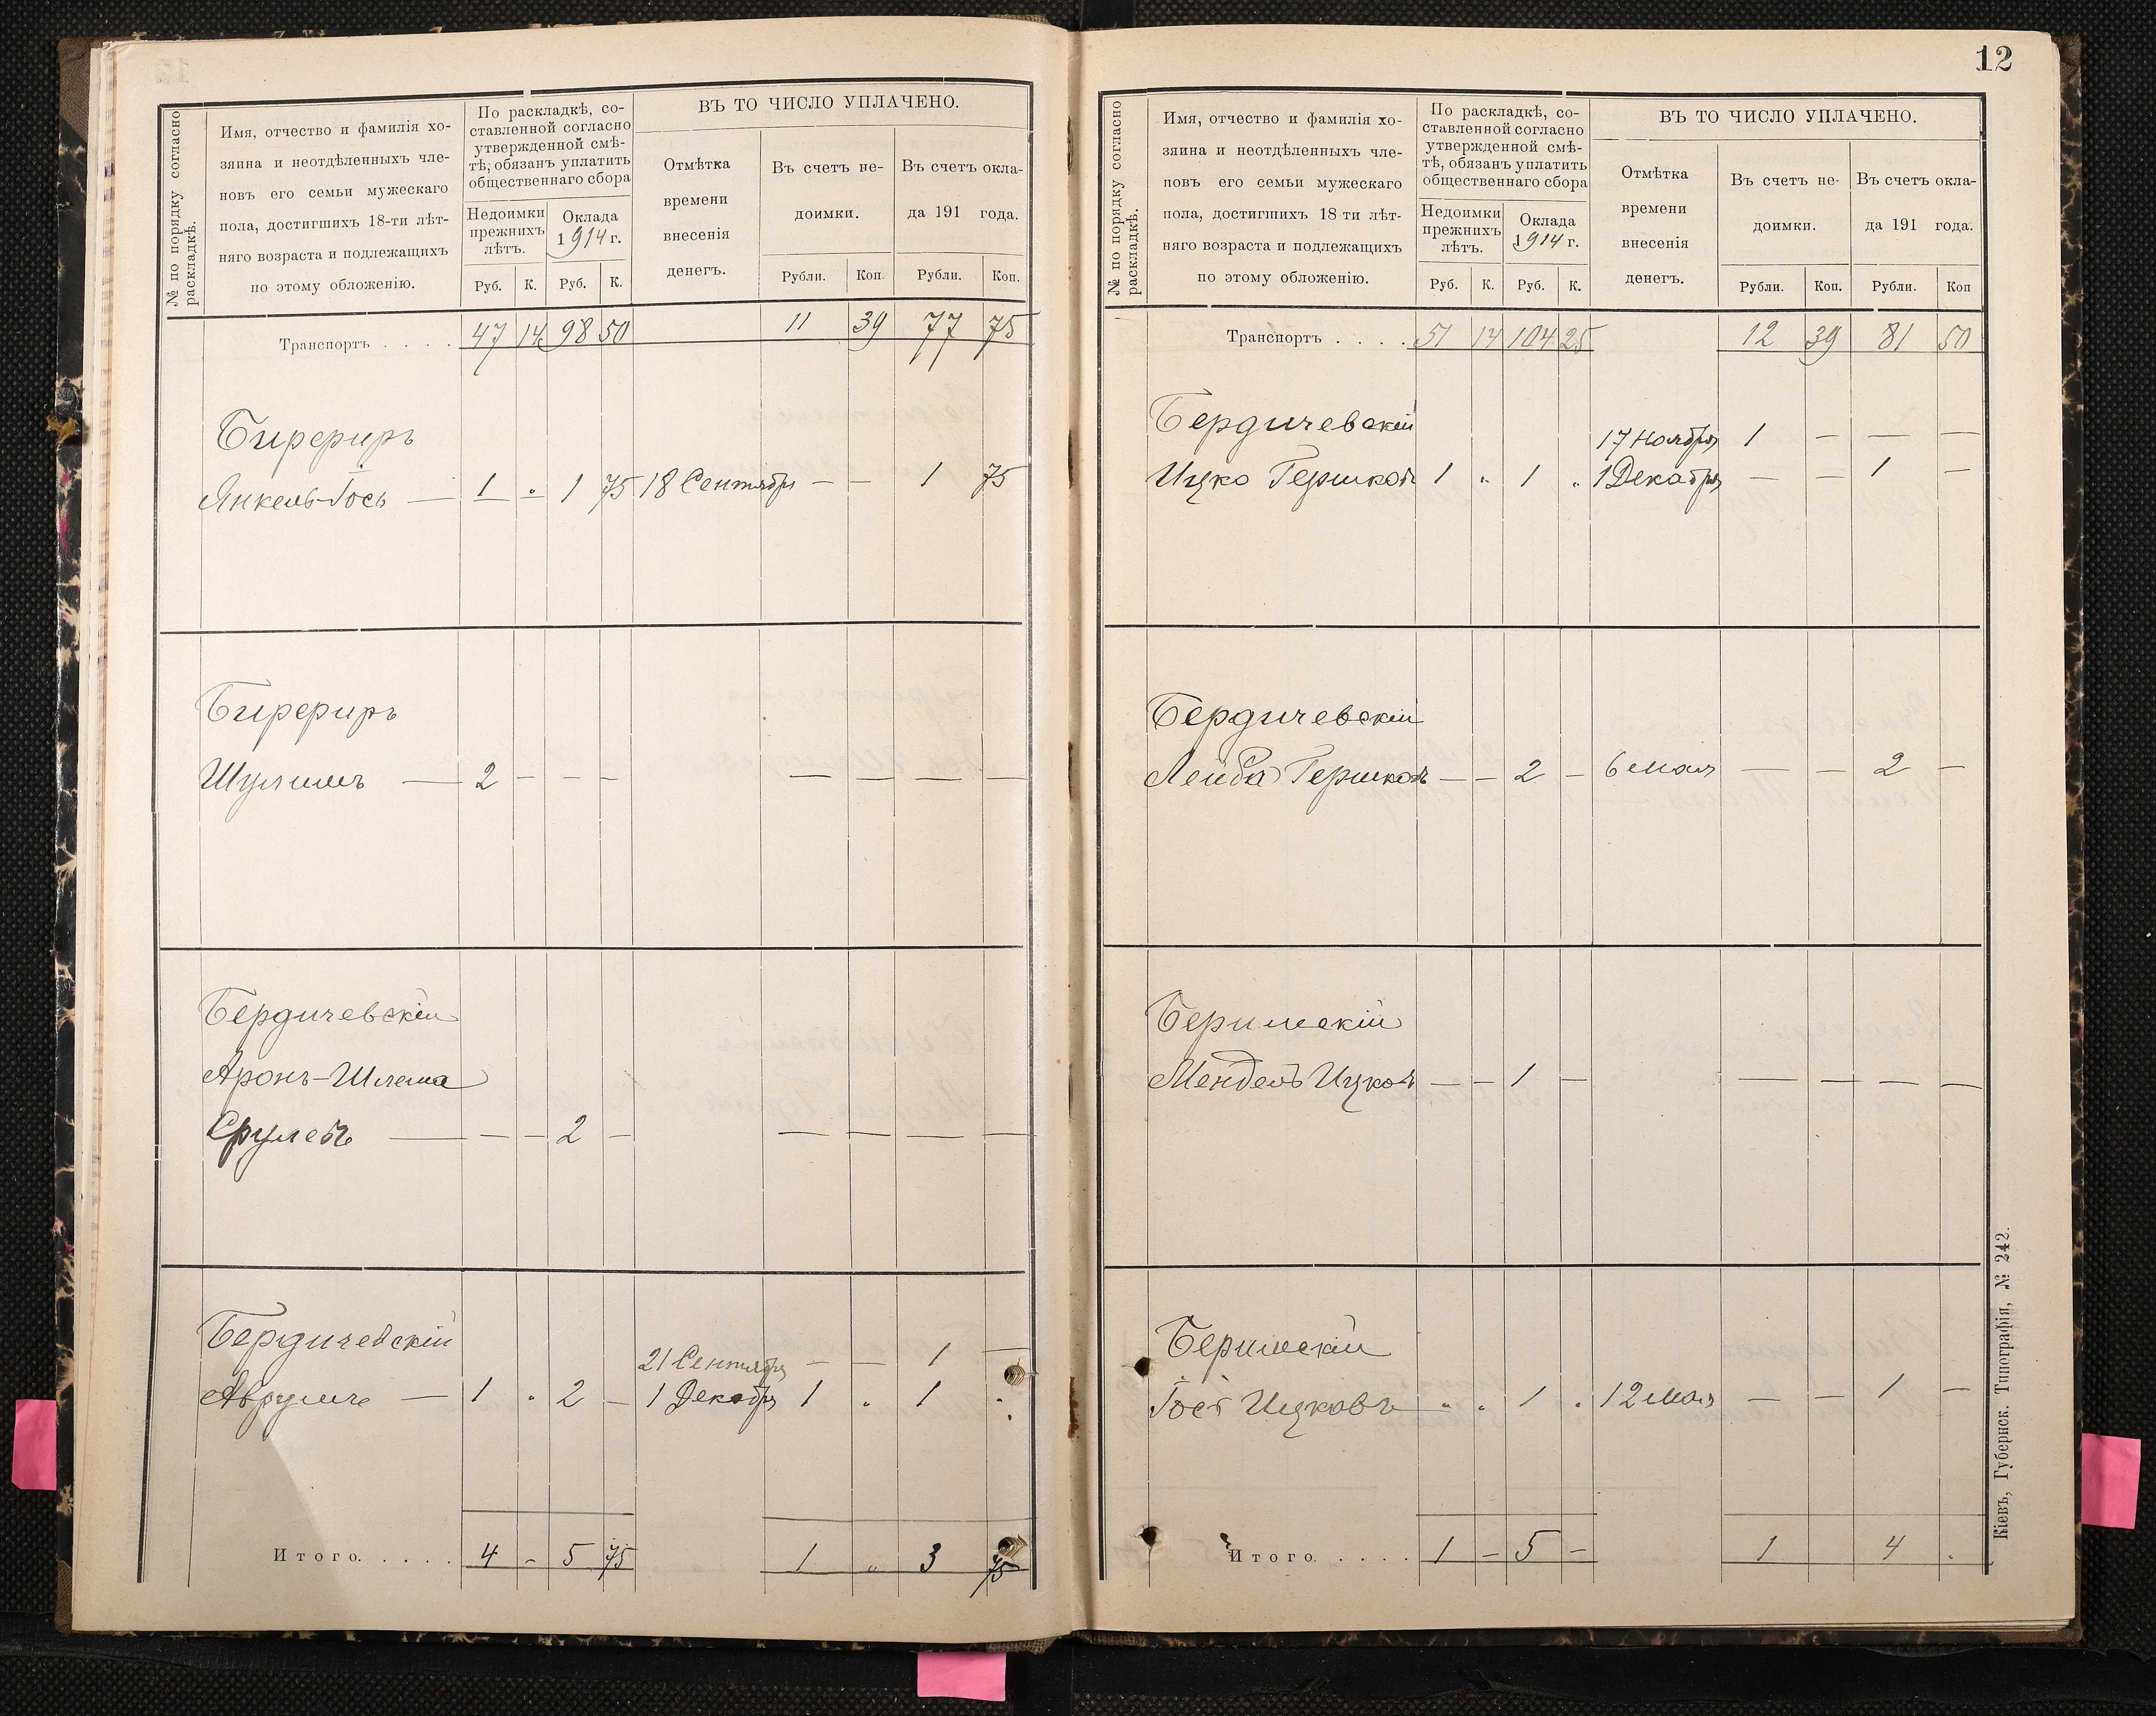 № по порядку согласно
раскладкѣ.
Имя, отчество и фамилія хо-
зяина и неотдѣленныхъ чле-
новъ его семьи мужескаго
пола, достигшихъ 18-ти лѣт-
няго возраста и подлежащихъ
по этому обложенію.
По раскладкѣ, со-
ставленной согласно
утвержденной смѣ-
тѣ; обязанъ уплатить
общественнаго сбора
Недоимки
прежнихъ
лѣтъ.
Оклада
1914 г.
Руб. К. Руб. К.
ВЪ ТО ЧИСЛО УПЛАЧЕНО.
Отмѣтка
времени
внесенія
денегъ.
Въ счетъ не-
доимки.
Въ счетъ окла-
да 191 года.
Рубли. Коп. Рубли. Коп.
Транспортъ . . . . 47 14 98 50 11 39 77 75
Бирфиръ
Янкель-Іось — 1 „ 1 75 18 Сентября — — 1 75
Бирфиръ
Шулимъ — 2 — — — — — — —
Бердичевскій
Аронъ-Шлема
Срулевъ — — — 2 — — — — —
Бердичевскій
21 Сентября — — 1 —
Аврумъ — 1 „ 2 — 1 Декабря 1 „ 1 „
Итого. . . . . 4 — 5 75 1 „ 3 75
12
№ по порядку согласно
раскладкѣ.
Имя, отчество и фамилія хо-
зяина и неотдѣленныхъ чле-
новъ его семьи мужескаго
пола, достигшихъ 18-ти лѣт-
няго возраста и подлежащихъ
по этому обложенію.
По раскладкѣ, со-
ставленной согласно
утвержденной смѣ-
тѣ, обязанъ уплатить
общественнаго сбора
Недоимки
прежнихъ
лѣтъ.
Оклада
1914 г.
Руб. К. Руб. К.
ВЪ ТО ЧИСЛО УПЛАЧЕНО.
Отмѣтка
времени
внесенія
денегъ.
Въ счетъ не-
доимки.
Въ счетъ окла-
да 191 года.
Рубли. Коп. Рубли. Коп
Транспортъ . . . . 51 14 104 25 12 39 81 50
Бердичевскій
17 Ноября 1 — — —
Ицко Гершковъ 1 „ 1 „ 1 Декабря — — 1 —
Бердичевскій
Лейба Гершковъ — — 2 — 6 мая — — 2 —
Беримскій
Мендель Ицковъ — — 1 — — — — —
Беримскій
Іось Ицковъ „ „ 1 „ 12 мая — — 1 —
Итого. . . . . 1 — 5 — 1 4 .
Кіевъ, Губернск. Типографія, № 242.